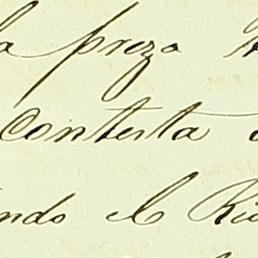 la prezo
Contesta
ndo el Ri